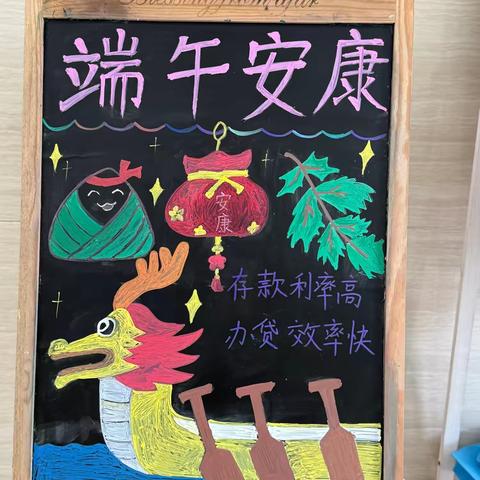 端午安康
安康
存款利率高
办贷效率快